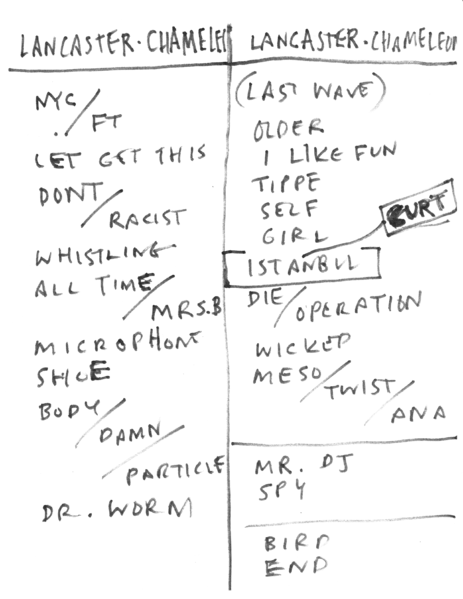 LANCASTER · CHAMELEO
NYC / FT
LET GET THIS
DONT / RACIST
WHISTLING
ALL TIME / MRS. B
MICROPHONE
SHOE
BODY / DAMN / PARTICLE
DR. WORM
LANCASTER · CHAMELEON
(LAST WAVE)
OLDER
I LIKE FUN
TIPPE
SELF
GIRL
CURT
ISTANBUL
DIE / OPERATION
WICKED
MESO / TWIST / ANA
MR. DJ
SPY
BIRD
END